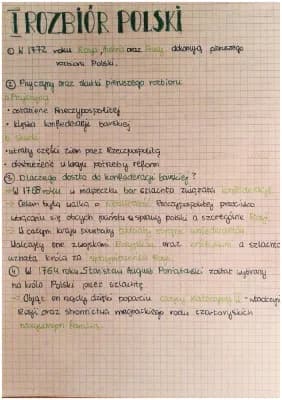 I ROZBIÓR POLSKI
① W 1772 roku Rosja, Austria oraz Prusy dokonują pierwszego
rozbioru Polski.
② Przyczyny oraz skutki pierwszego rozbioru
a. Przyczyny
• osłabienie Rzeczypospolitej
• klęska konfederacji barskiej
b. Skutki
• utrata części ziem przez Rzeczpospolitą
• dostrzeżenie w kraju potrzeby reform
③ Dlaczego doszło do konfederacji barskiej?
→ W 1768 roku w miasteczku bar szlachta związała konfederację
→ Celem była walka o niezależność Rzeczypospolitej przeciwko
wtrącaniu się obcych państw w sprawy polski a szczególnie Rosji.
→ W całym kraju powstały oddziały zbrojne konfederatów
Walczyły one z wojskami Rosyjskimi oraz królewskimi a szlachta
uznała króla za
④ W 1764 roku Stanisław August Poniatowski został wybrany
na króla Polski przez szlachtę
→ Objął on rządy dzięki poparciu carycy Katarzyny II - władczyni
Rosji oraz stronnictwa magnackiego rodu czartoryskich
nazywanych Familią.